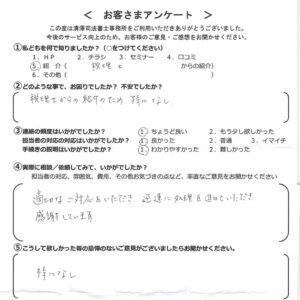 ＜ お客さまアンケート ＞
この度は清澤司法書士事務所をご利用いただきありがとうございました。
今後のサービス向上のため、お客様のご意見・ご感想をお聞かせください。
①私どもを何で知りましたか？（○をつけてください）
1．HP　2．チラシ　3．セミナー　4．口コミ
5．紹介（税理士　からの紹介）
6．その他（　）
②どのような事で、お困りでしたか？ 不安でしたか？
税理士からの紹介のため 特になし
③連絡の頻度はいかがでしたか？　1．ちょうど良い　2．もう少し欲しかった
担当者の対応の対応はいかがでしたか？　1．良かった　2．普通　3．イマイチ
手続きの説明はいかがでしたか？　1．わかりやすかった　2．難しかった
④実際に相談／依頼してみて、いかがでしたか？
担当者の対応、雰囲気、費用、その他お気づきの点など、率直なご意見をお聞かせください
適切なご対応をいただき、迅速に処理を進めていただき
感謝しています
⑤こうして欲しかった等の忌憚のないご意見がございましたらお聞かせください。
特になし